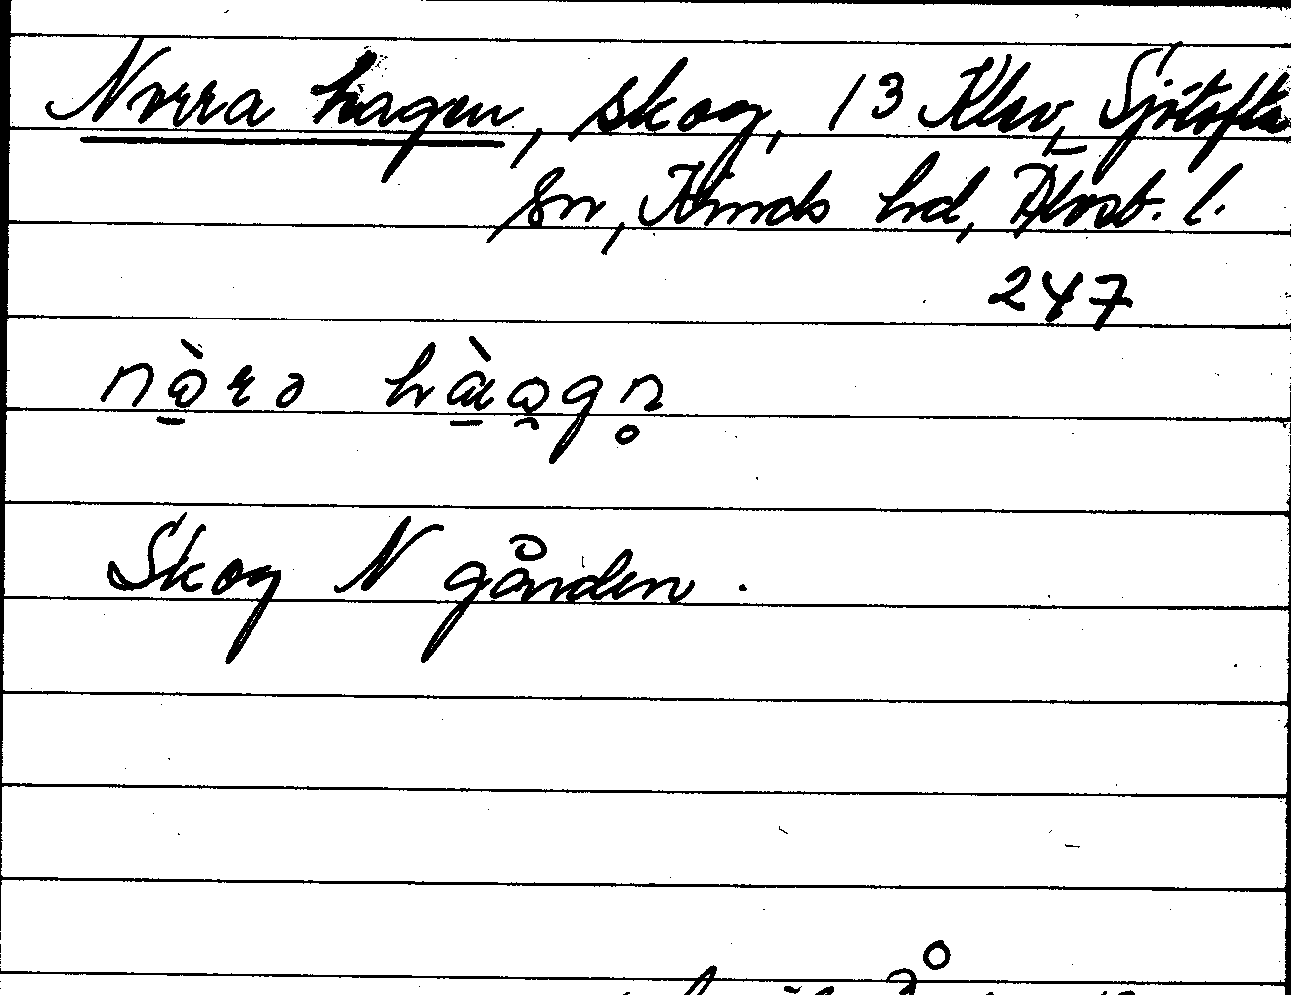 Norra hagen, skog, 13 Klev, Sjötofta
sn, Kinds hd, Älvsb. l.
247
nὰ̱rə hὰ̱a̯gn̥
Skog N gården.